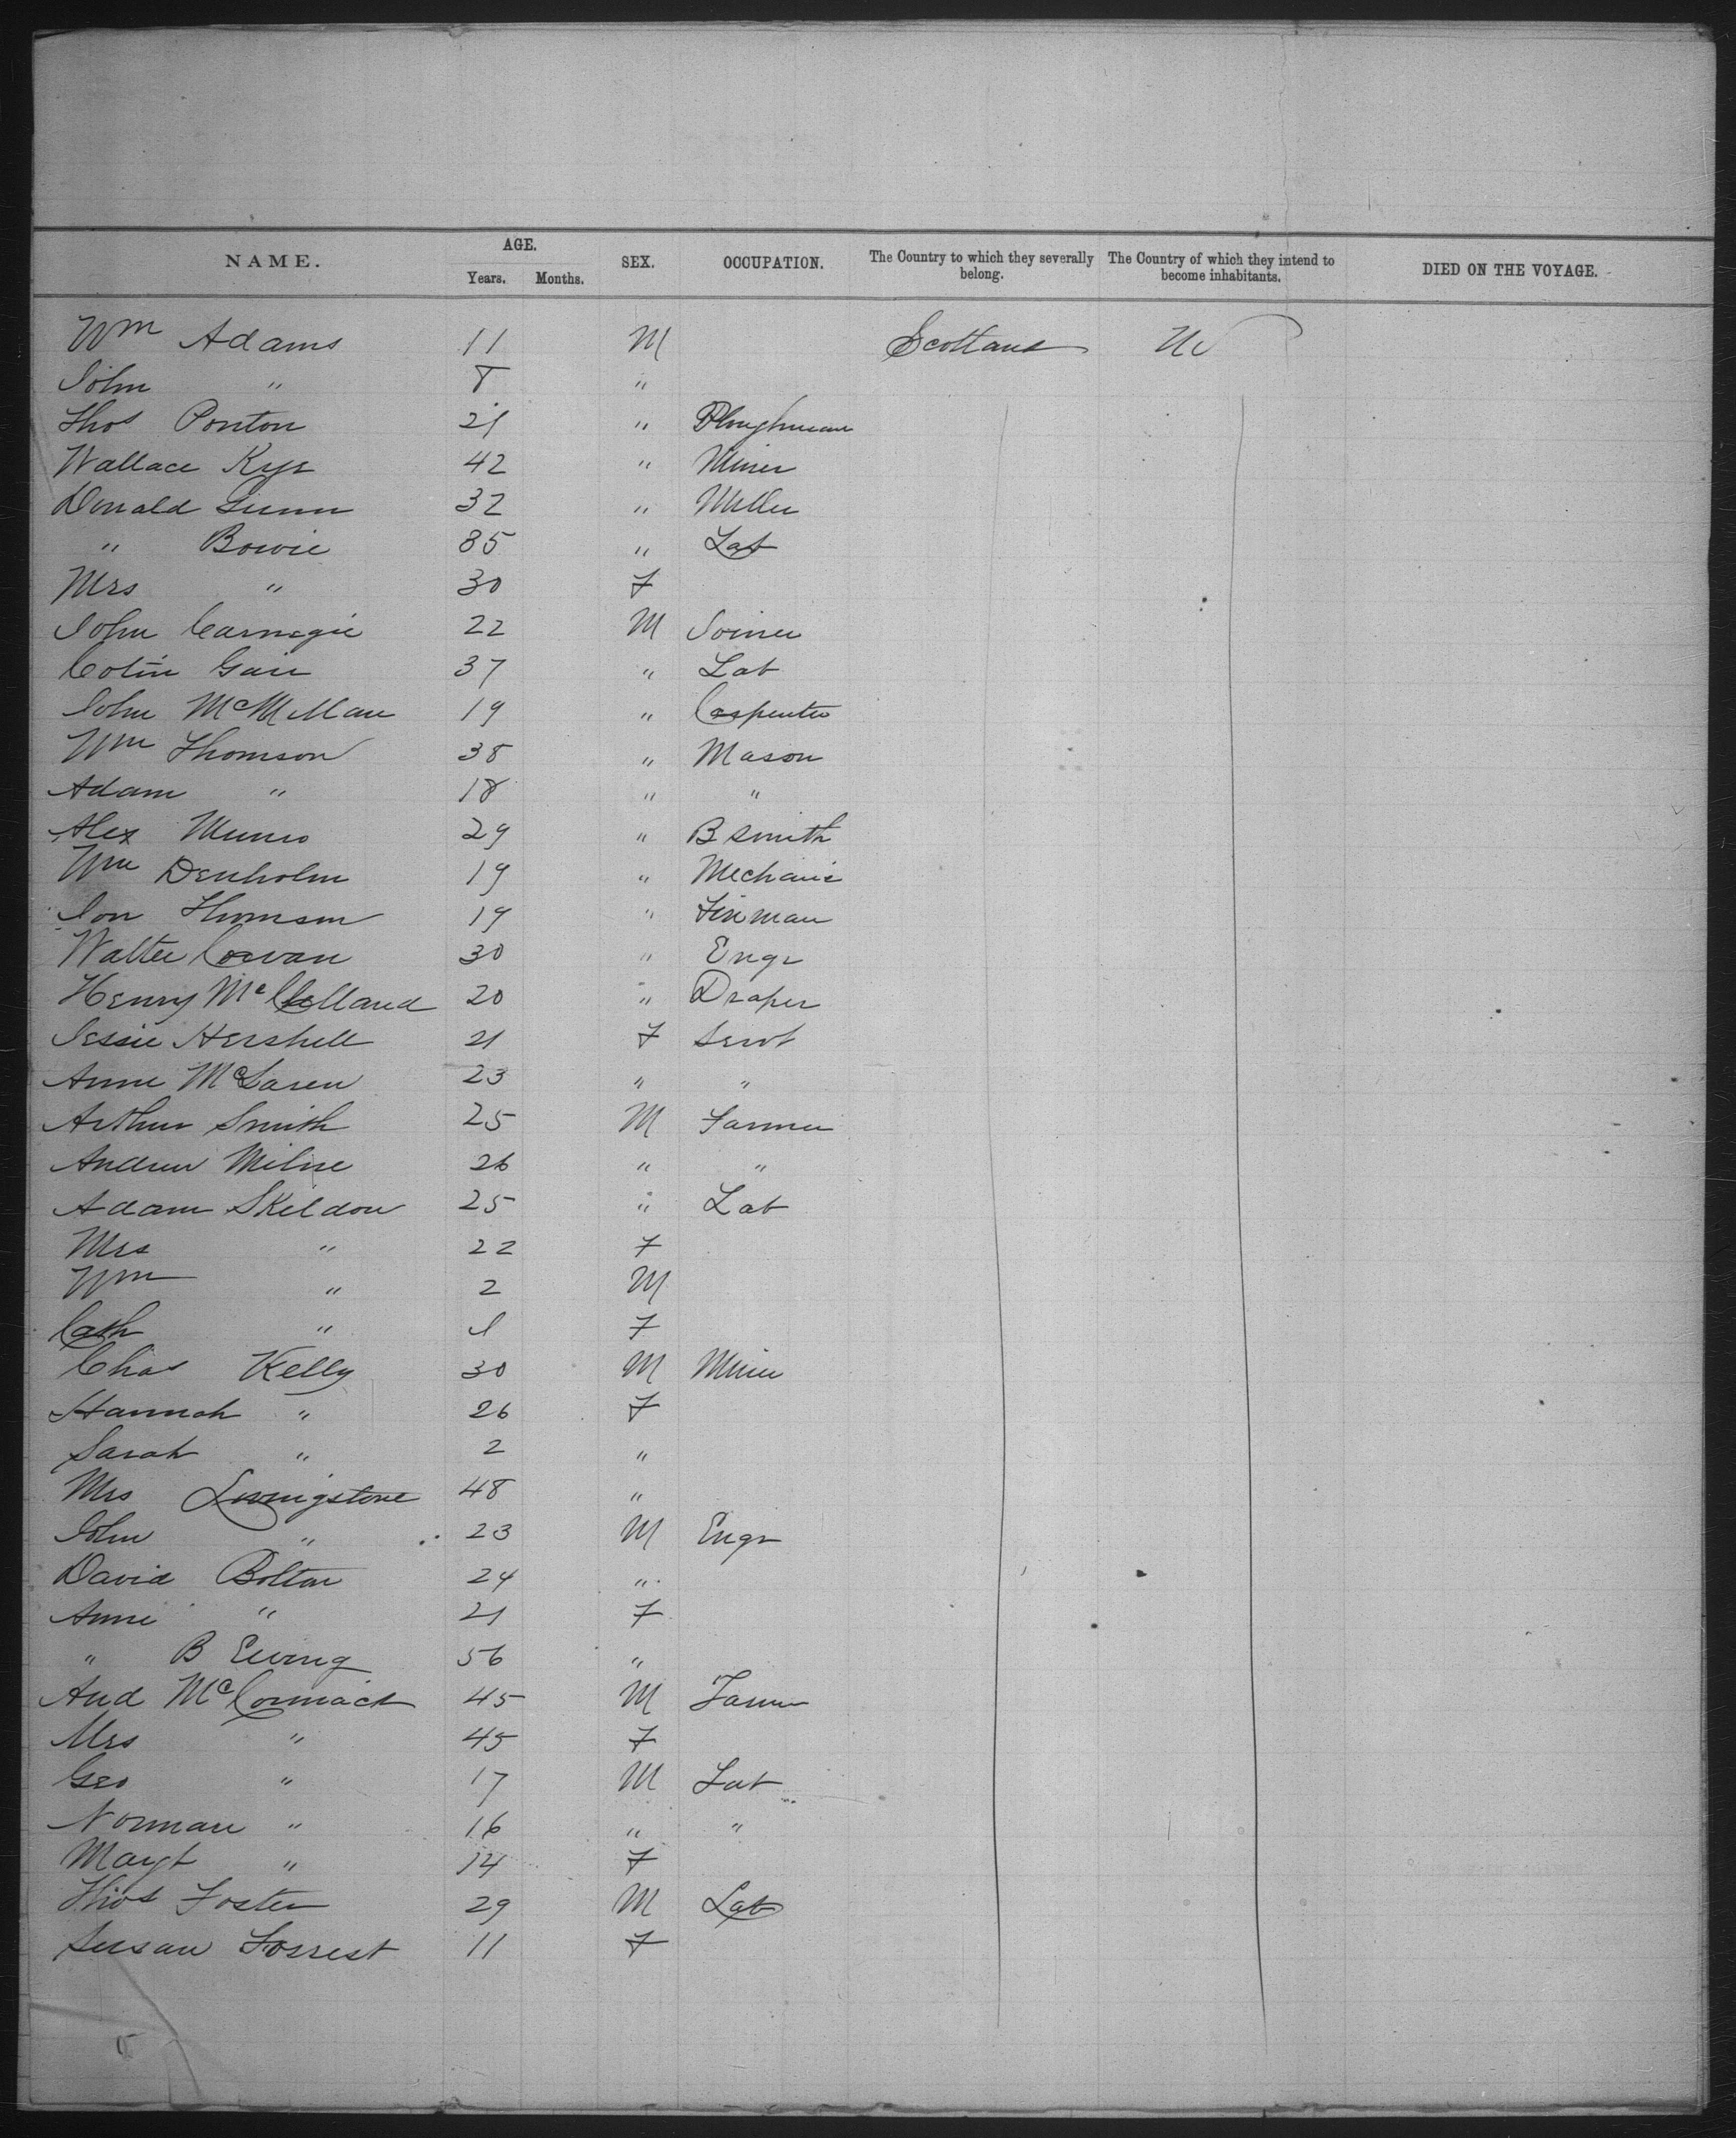 NAME. AGE. Years. Months. SEX. OCCUPATION. The Country to which they severally belong. The Country of which they intend to become inhabitants. DIED ON THE VOYAGE.
Wm Adams 11 M Scotland
John " 8 "
Thos Ponton 21 " Ploughman
Wallace Kye 42 " Miner
Donald Gunn 32 " Miller
" Bowie 35 " Lab
Mrs " 30 F
John Carnegie 22 M Joiner
Colin Gair 37 " Lab
John McMillan 19 " Carpenter
Wm Thomson 38 " Mason
Adam " 18 " "
Alex Munro 29 " B smith
Wm Denholm 19 " Mechanic
Jon Thomson 19 " Fireman
Walter Cowan 30 " Engr
Henry McClelland 20 " Draper
Jessie Hershell 21 F Servt
Anne McLaren 23 " "
Arthur Smith 25 M Farmer
Andrew Milne 26 " "
Adam Skeldon 25 " Lab
Mrs " 22 F
Wm " 2 M
Cath " 1 F
Chas Kelly 30 M Miner
Hannah " 26 F
Sarah " 2 "
Mrs Livingstone 48 "
John " 23 M Engr
David Bolton 24 "
Anne " 21 F
" B Ewing 56 "
And McCormack 45 M Farmer
Mrs " 45 F
Geo " 17 M Lab
Norman " 16 " "
Margt " 14 F
Thos Foster 29 M Lab
Susan Forrest 11 F